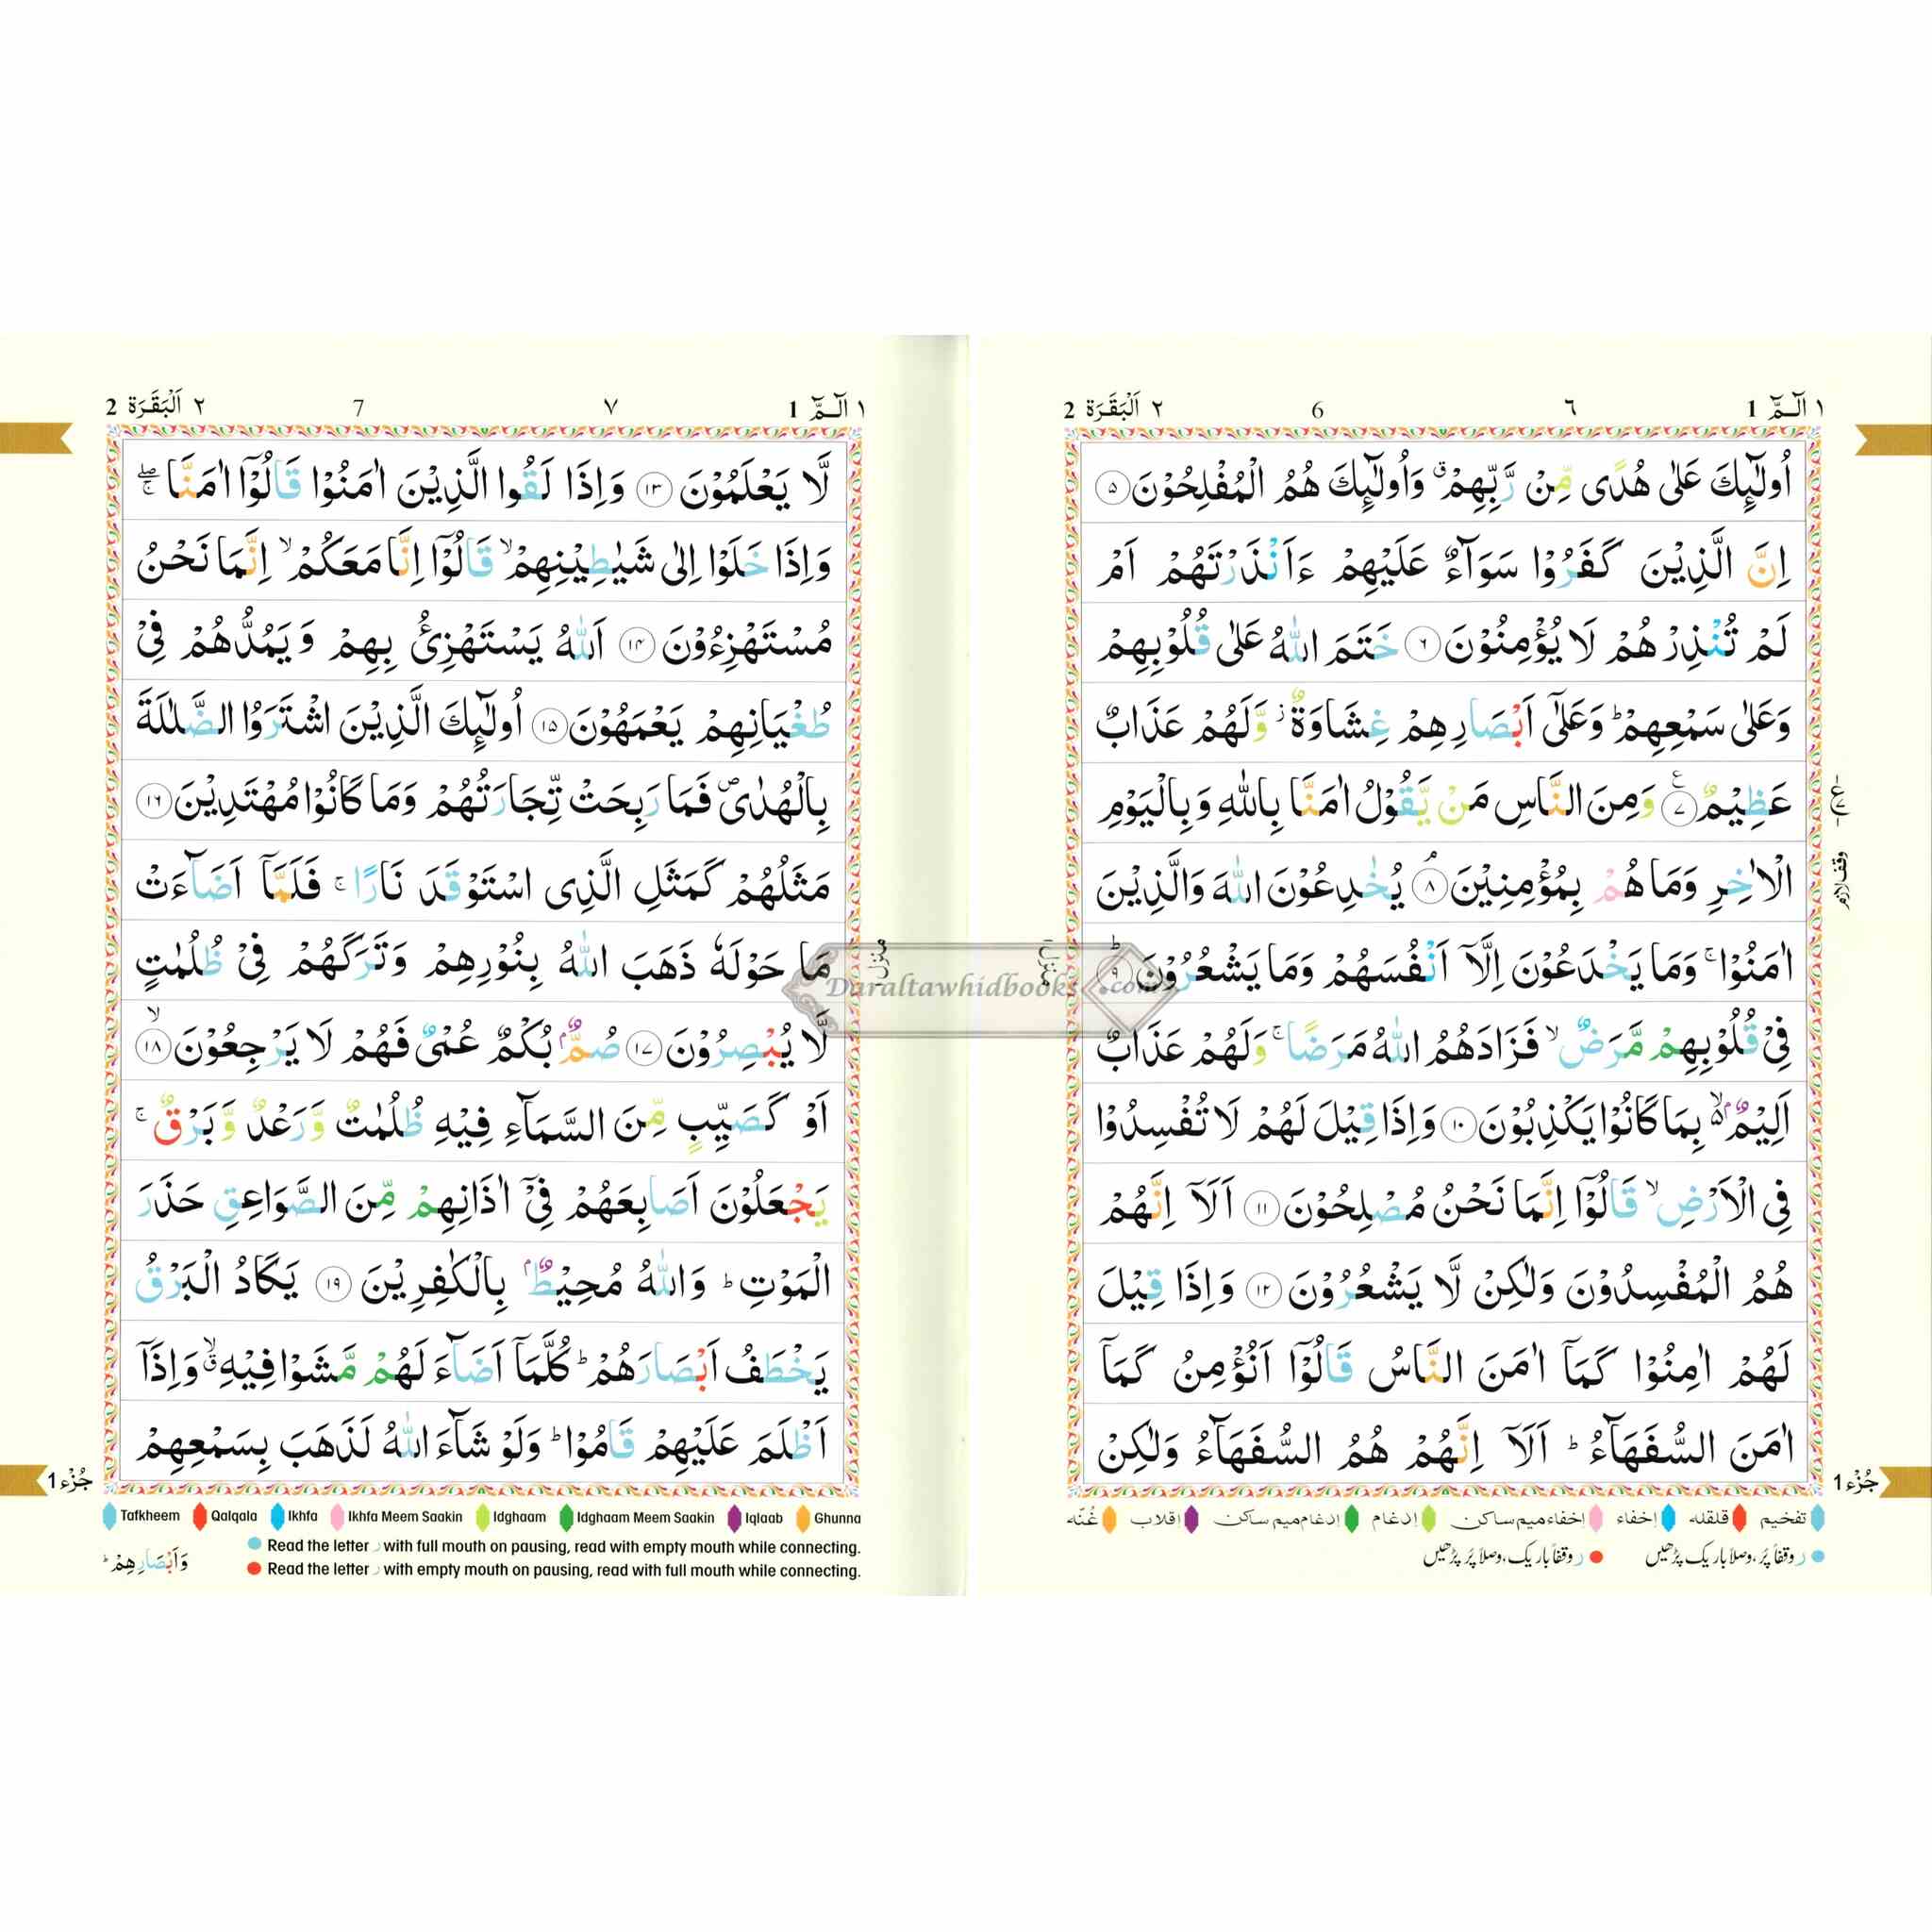 ١ الٓمّٓ 1
٦
6
٢ اَلْبَقَرَة 2
اُولٰٓئِكَ عَلٰى هُدًى مِّنْ رَّبِّهِمْ ۗ وَاُولٰٓئِكَ هُمُ الْمُفْلِحُوْنَ ۝٥
اِنَّ الَّذِيْنَ كَفَرُوْا سَوَآءٌ عَلَيْهِمْ ءَاَنْذَرْتَهُمْ اَمْ
لَمْ تُنْذِرْهُمْ لَا يُؤْمِنُوْنَ ۝٦ خَتَمَ اللّٰهُ عَلٰى قُلُوْبِهِمْ
وَعَلٰى سَمْعِهِمْ ؕ وَعَلٰٓى اَبْصَارِهِمْ غِشَاوَةٌ ۫ وَّلَهُمْ عَذَابٌ
عَظِيْمٌ ۝٧ وَمِنَ النَّاسِ مَنْ يَّقُوْلُ اٰمَنَّا بِاللّٰهِ وَبِالْيَوْمِ
الْاٰخِرِ وَمَا هُمْ بِمُؤْمِنِيْنَ ۝٨ يُخٰدِعُوْنَ اللّٰهَ وَالَّذِيْنَ
اٰمَنُوْا ۚ وَمَا يَخْدَعُوْنَ اِلَّآ اَنْفُسَهُمْ وَمَا يَشْعُرُوْنَ ۝٩
فِيْ قُلُوْبِهِمْ مَّرَضٌ ۙ فَزَادَهُمُ اللّٰهُ مَرَضًا ۚ وَلَهُمْ عَذَابٌ
اَلِيْمٌۢ ۙ بِمَا كَانُوْا يَكْذِبُوْنَ ۝١٠ وَاِذَا قِيْلَ لَهُمْ لَا تُفْسِدُوْا
فِي الْاَرْضِ ۙ قَالُوْٓا اِنَّمَا نَحْنُ مُصْلِحُوْنَ ۝١١ اَلَآ اِنَّهُمْ
هُمُ الْمُفْسِدُوْنَ وَلٰكِنْ لَّا يَشْعُرُوْنَ ۝١٢ وَاِذَا قِيْلَ
لَهُمْ اٰمِنُوْا كَمَآ اٰمَنَ النَّاسُ قَالُوْٓا اَنُؤْمِنُ كَمَآ
اٰمَنَ السُّفَهَآءُ ؕ اَلَآ اِنَّهُمْ هُمُ السُّفَهَآءُ وَلٰكِنْ
وقف لازم
منزل ١
جُزْء 1
تفخیم قلقله اِخفاء اِخفاء میم ساکن اِدغام اِدغام میم ساکن اِقلاب غُنّه
ر وقفاً پُر، وصلاً باریک پڑھیں ر وقفاً باریک، وصلاً پُر پڑھیں
Daraltawhidbooks .com
١ الٓمّٓ 1
٧
7
٢ اَلْبَقَرَة 2
لَّا يَعْلَمُوْنَ ۝١٣ وَاِذَا لَقُوا الَّذِيْنَ اٰمَنُوْا قَالُوْٓا اٰمَنَّا ۖۚ
وَاِذَا خَلَوْا اِلٰى شَيٰطِيْنِهِمْ ۙ قَالُوْٓا اِنَّا مَعَكُمْ ۙ اِنَّمَا نَحْنُ
مُسْتَهْزِءُوْنَ ۝١٤ اَللّٰهُ يَسْتَهْزِئُ بِهِمْ وَيَمُدُّهُمْ فِيْ
طُغْيَانِهِمْ يَعْمَهُوْنَ ۝١٥ اُولٰٓئِكَ الَّذِيْنَ اشْتَرَوُا الضَّلٰلَةَ
بِالْهُدٰى ۪ فَمَا رَبِحَتْ تِّجَارَتُهُمْ وَمَا كَانُوْا مُهْتَدِيْنَ ۝١٦
مَثَلُهُمْ كَمَثَلِ الَّذِى اسْتَوْقَدَ نَارًا ۚ فَلَمَّآ اَضَآءَتْ
مَا حَوْلَهٗ ذَهَبَ اللّٰهُ بِنُوْرِهِمْ وَتَرَكَهُمْ فِيْ ظُلُمٰتٍ
لَّا يُبْصِرُوْنَ ۝١٧ صُمٌّۢ بُكْمٌ عُمْىٌ فَهُمْ لَا يَرْجِعُوْنَ ۙ۝١٨
اَوْ كَصَيِّبٍ مِّنَ السَّمَآءِ فِيْهِ ظُلُمٰتٌ وَّرَعْدٌ وَّبَرْقٌ ۚ
يَجْعَلُوْنَ اَصَابِعَهُمْ فِيْٓ اٰذَانِهِمْ مِّنَ الصَّوَاعِقِ حَذَرَ
الْمَوْتِ ؕ وَاللّٰهُ مُحِيْطٌۢ بِالْكٰفِرِيْنَ ۝١٩ يَكَادُ الْبَرْقُ
يَخْطَفُ اَبْصَارَهُمْ ؕ كُلَّمَآ اَضَآءَ لَهُمْ مَّشَوْا فِيْهِ ۙۗ وَاِذَآ
اَظْلَمَ عَلَيْهِمْ قَامُوْا ؕ وَلَوْ شَآءَ اللّٰهُ لَذَهَبَ بِسَمْعِهِمْ
منزل ١
جُزْء 1
Tafkheem Qalqala Ikhfa Ikhfa Meem Saakin Idghaam Idghaam Meem Saakin Iqlaab Ghunna
Read the letter ر with full mouth on pausing, read with empty mouth while connecting.
Read the letter ر with empty mouth on pausing, read with full mouth while connecting.
وَاَبْصَارِهِمْ ؕ